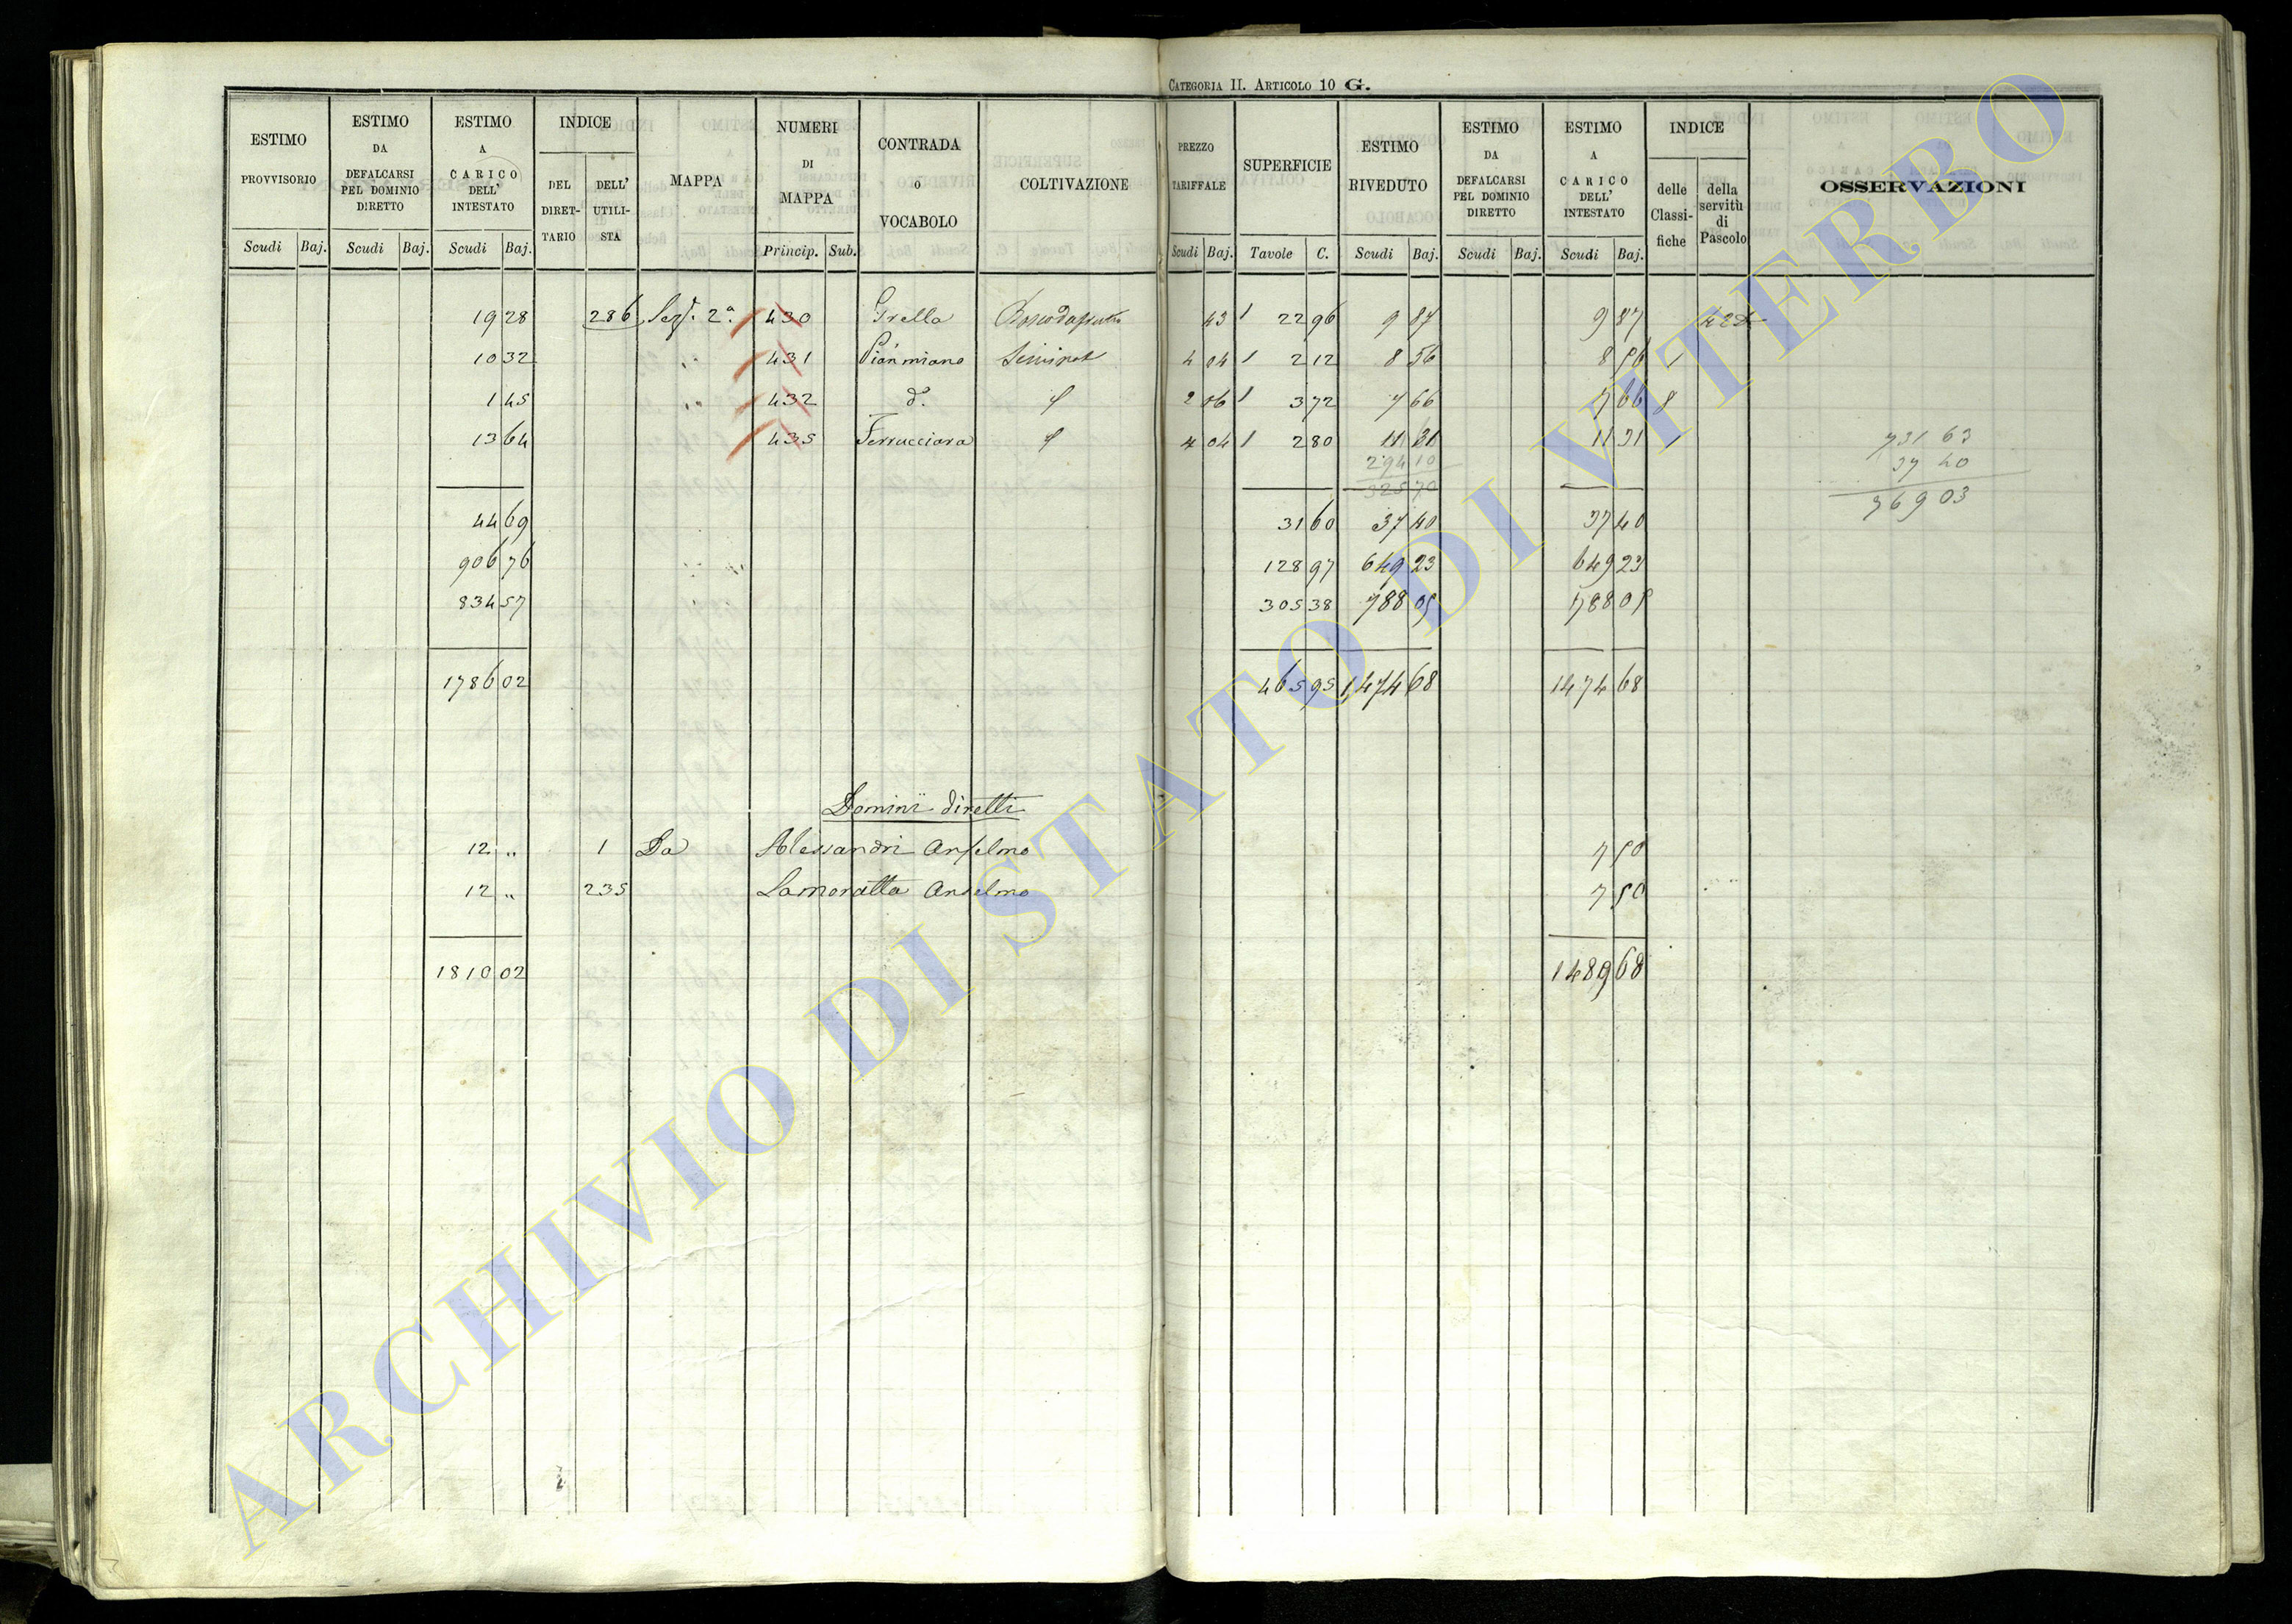 CATEGORIA II. ARTICOLO 10 G.
ESTIMO PROVVISORIO Scudi Baj.
ESTIMO DA DEFALCARSI PEL DOMINIO DIRETTO Scudi Baj.
ESTIMO A CARICO DELL' INTESTATO Scudi Baj.
INDICE DEL DIRET-TARIO DELL' UTILI-STA
MAPPA
NUMERI DI MAPPA Princip. Sub.
CONTRADA O VOCABOLO
COLTIVAZIONE
PREZZO TARIFFALE Scudi Baj.
SUPERFICIE Tavole C.
ESTIMO RIVEDUTO Scudi Baj.
ESTIMO DA DEFALCARSI PEL DOMINIO DIRETTO Scudi Baj.
ESTIMO A CARICO DELL' INTESTATO Scudi Baj.
INDICE delle Classi-fiche della servitù di Pascolo
OSSERVAZIONI
19 28 286 Sez. 2a. 430 Grella 43 1 22 96 9 87 9 87
10 32 " 431 Pianmiano Seminat 4 04 1 2 12 8 56 8 56 1
1 45 " 432 d.o 2 06 1 3 72 7 66 7 66 8
13 64 435 Ferrucciara 4 04 1 2 80 11 31 11 31 1
731 63
294 10
37 40
325 70
769 03
44 69 31 60 37 40 37 40
906 76 128 97 649 23 649 23
834 57 305 38 788 05 788 05
1786 02 465 95 1474 68 1474 68
Dominii diretti
12 " 1 Da Alessandri Anselmo 7 50
12 " 235 Lamoratta Anselmo 7 50
1810 02 1489 68
ARCHIVIO DI STATO DI VITERBO